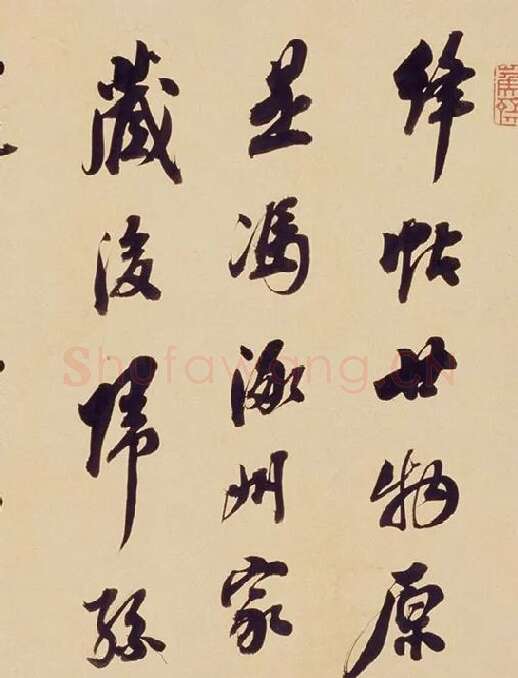 絳帖此物原
是馮涿州家
藏後歸孫
Shufawang.CN